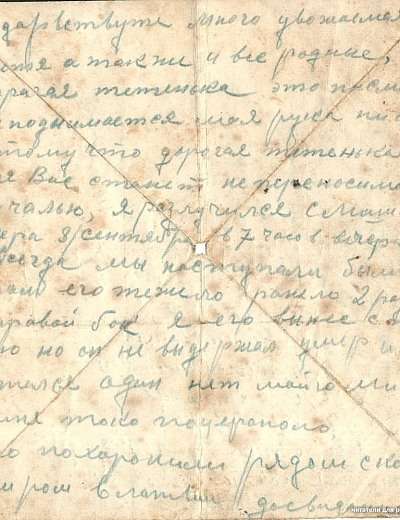 дарвствуте много уважаемая
стя а так жи и все родные,
рагая тетенька это писм
поднимается моя рука пис
тому что дорогая тетенька
я Вас станет непереносима
чалью, я разлучился с Миш
ера 8/сентября в 7 часов вечера
всегда мы наступали были
его тежило ранело 2 ра
правой бок я его вынес с
ю но он не выдержал умер и
тался один нет майго Ми
меня токо поцерапало
о похаронили рядом с ко
ром в латвии досвидан
читатели для р